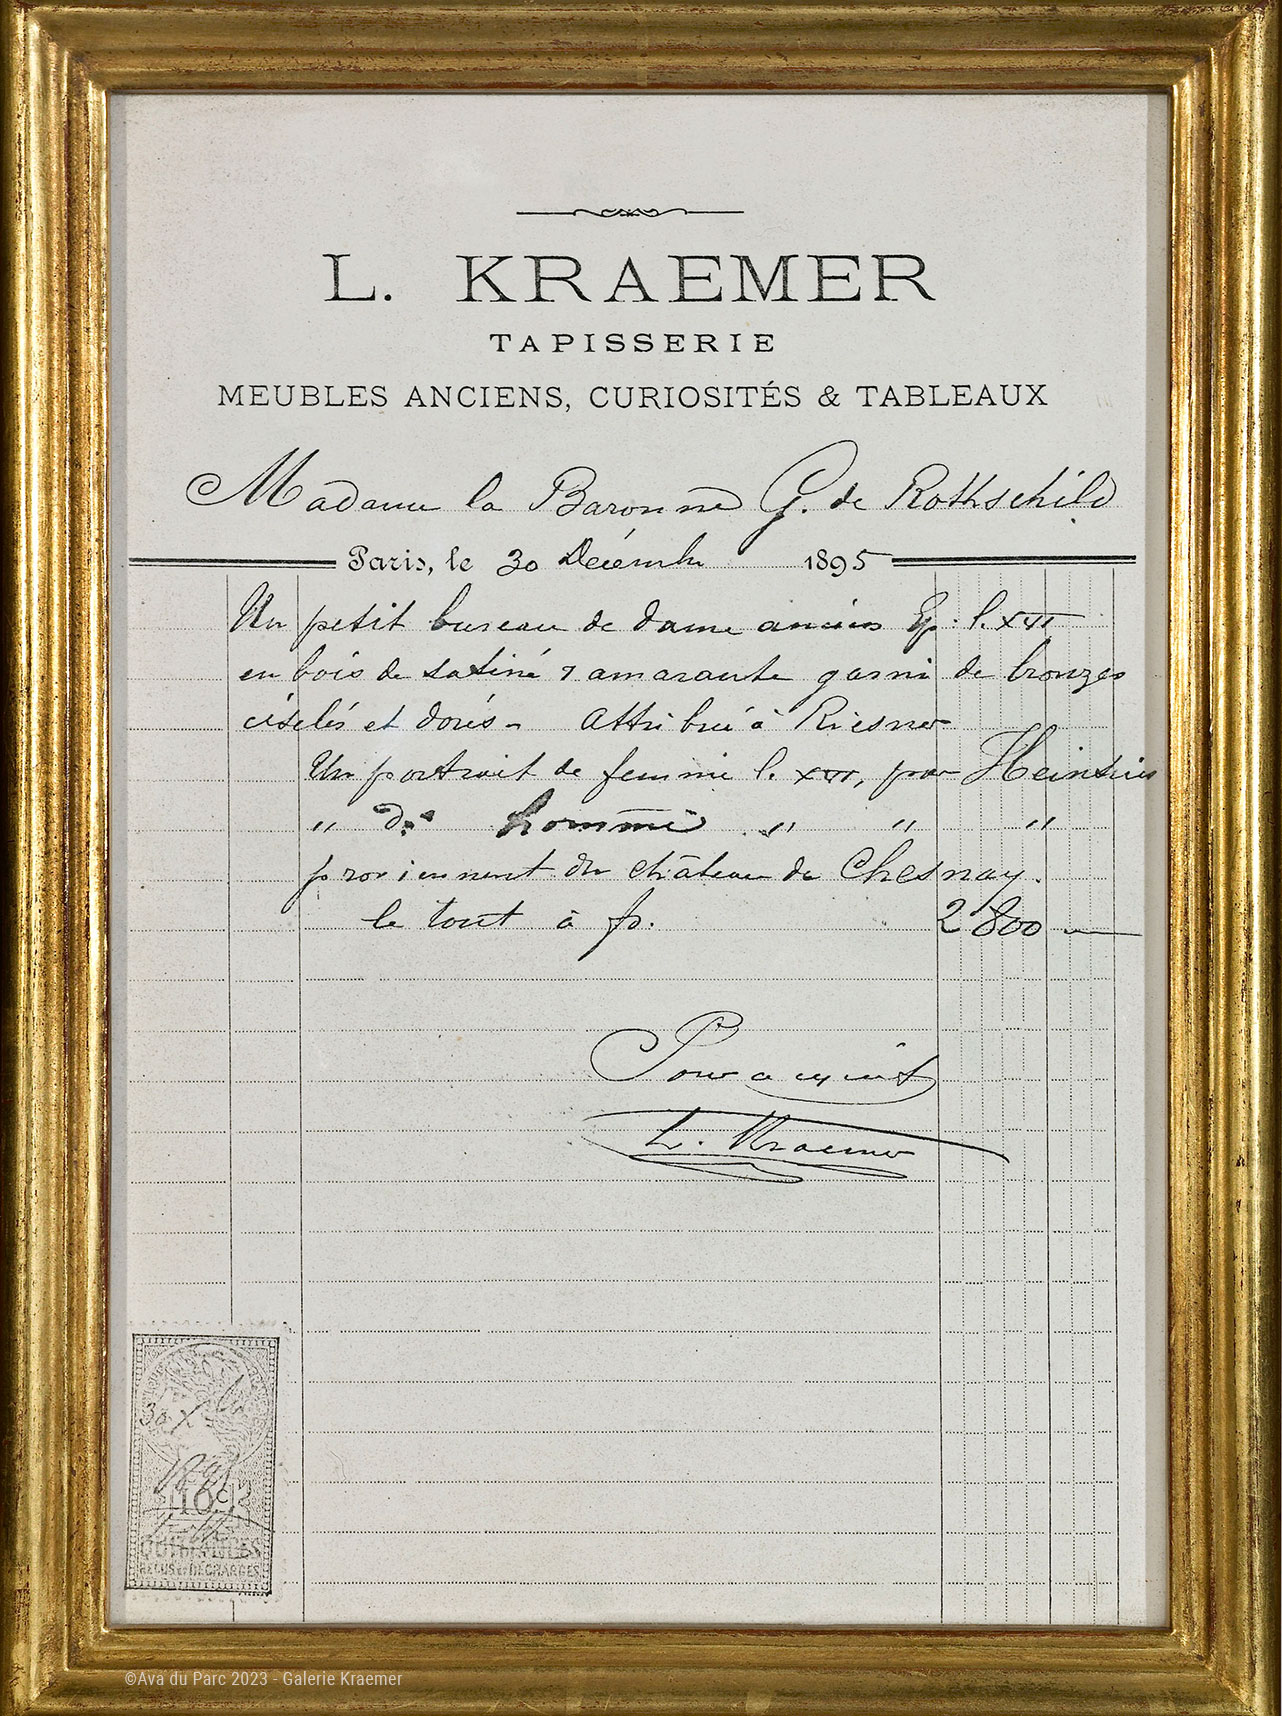 L. KRAEMER
TAPISSERIE
MEUBLES ANCIENS, CURIOSITÉS & TABLEAUX
Madame la Baronne G. de Rothschild
Paris, le 30 Décembre 1895
Un petit bureau de dame ancien Ep. L. XVI
en bois de satiné & amarante garni de bronzes
ciselés et dorés - Attribué à Riesner
Un portrait de femme L. XVI, par Heinsius
" do homme " " "
proviennent du château de Chesnay.
le tout à fr. 2800 —
Pour acquit
L. Kraemer
30 X
1895
10c
QUITTANCES
REÇUS ET DÉCHARGES
©Ava du Parc 2023 - Galerie Kraemer